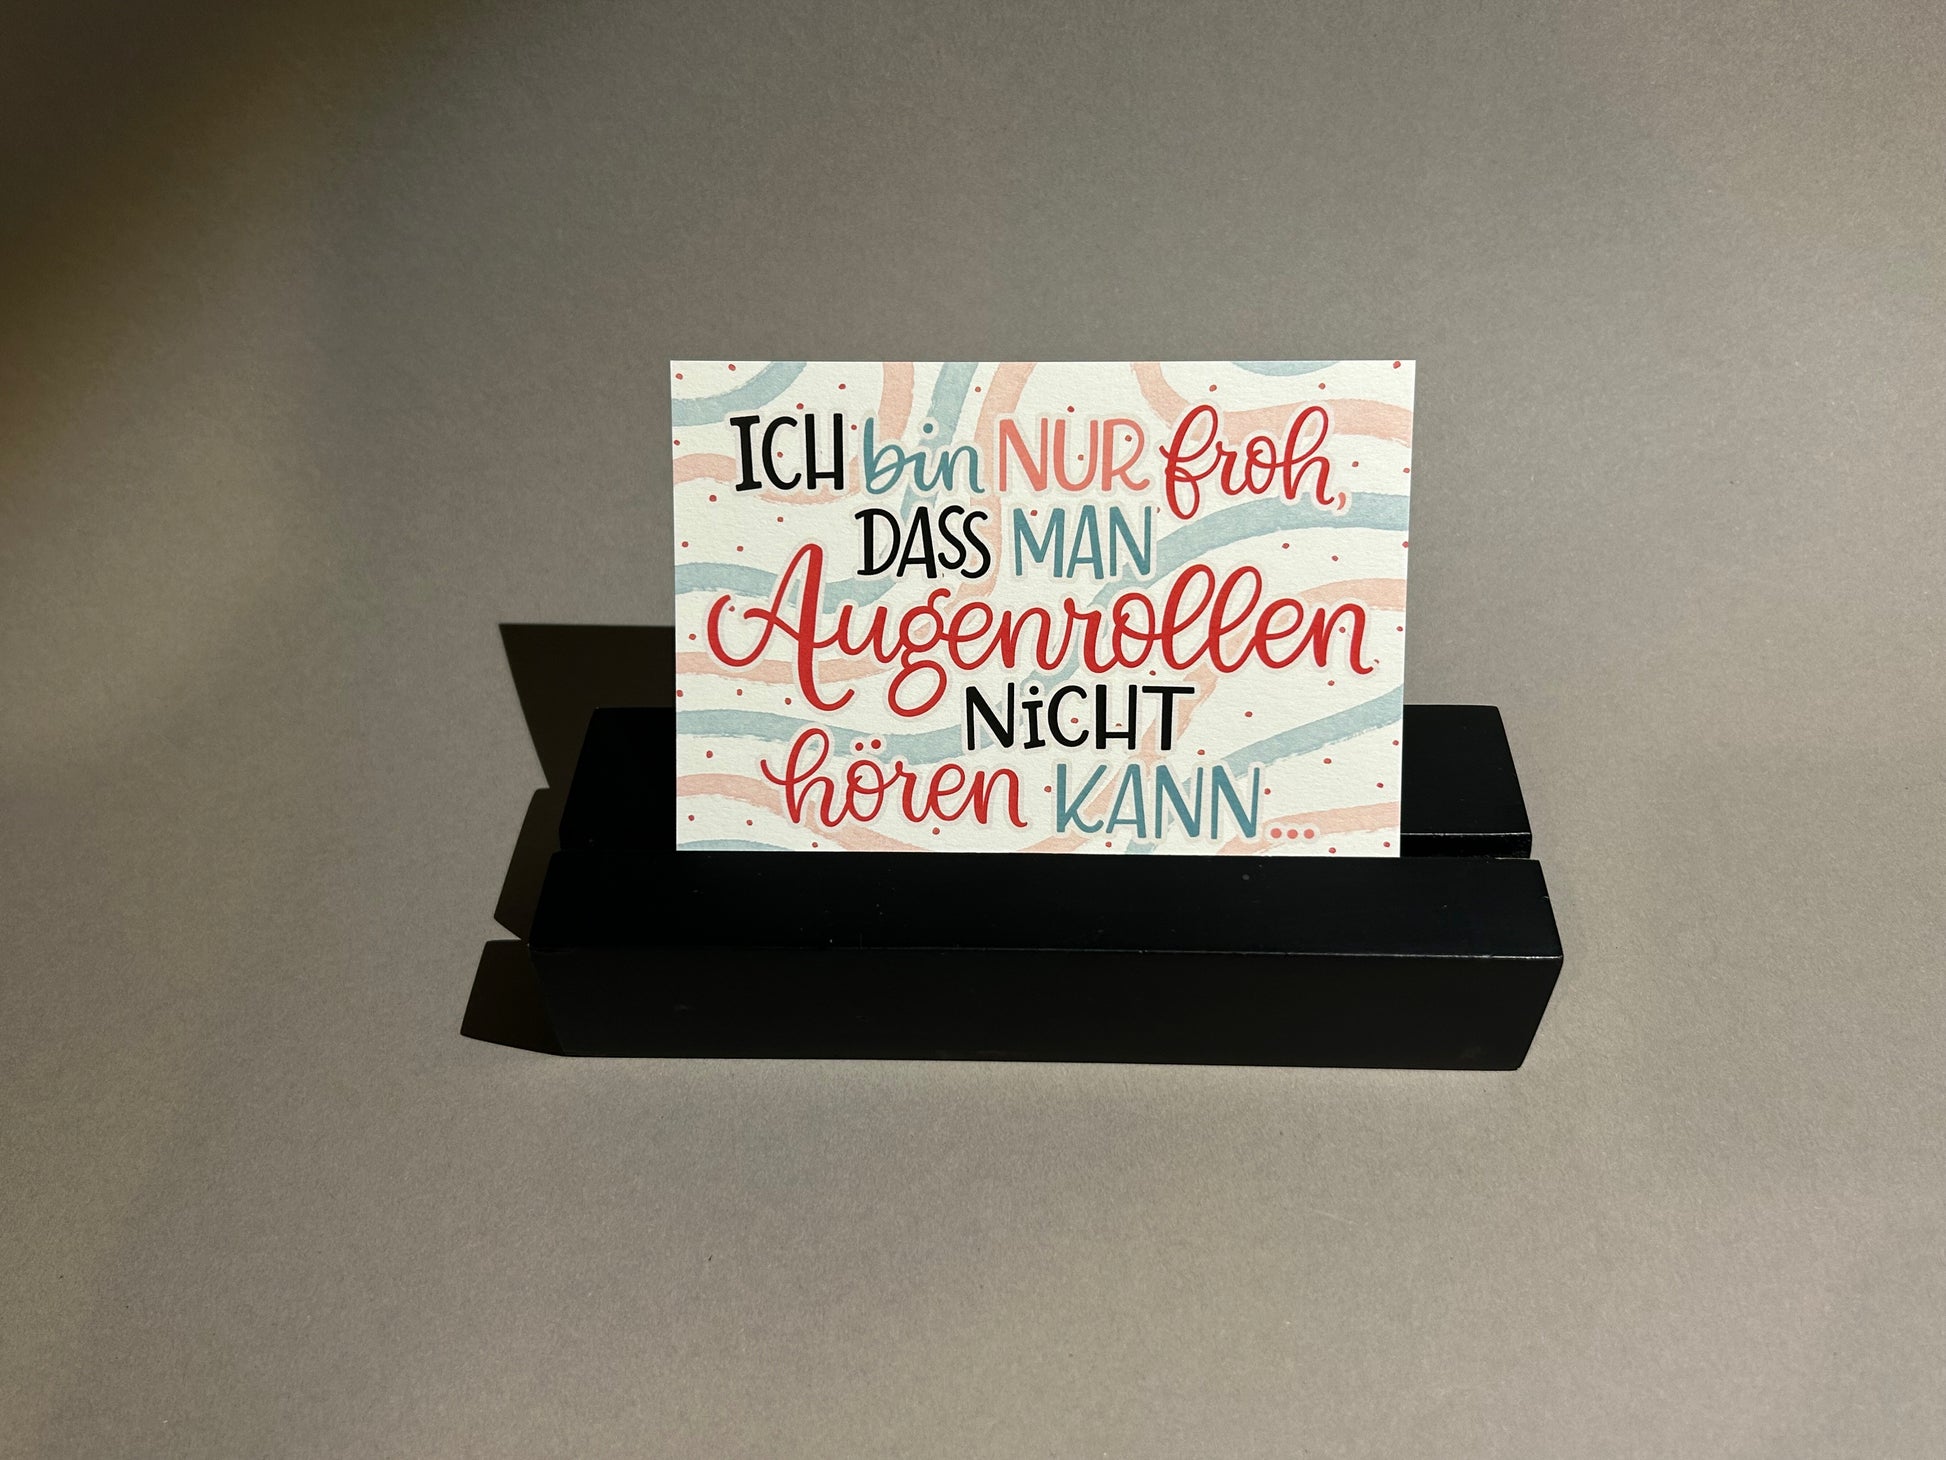 ICH bin NUR froh,
DASS MAN
Augenrollen
NiCHT
hören KANN...